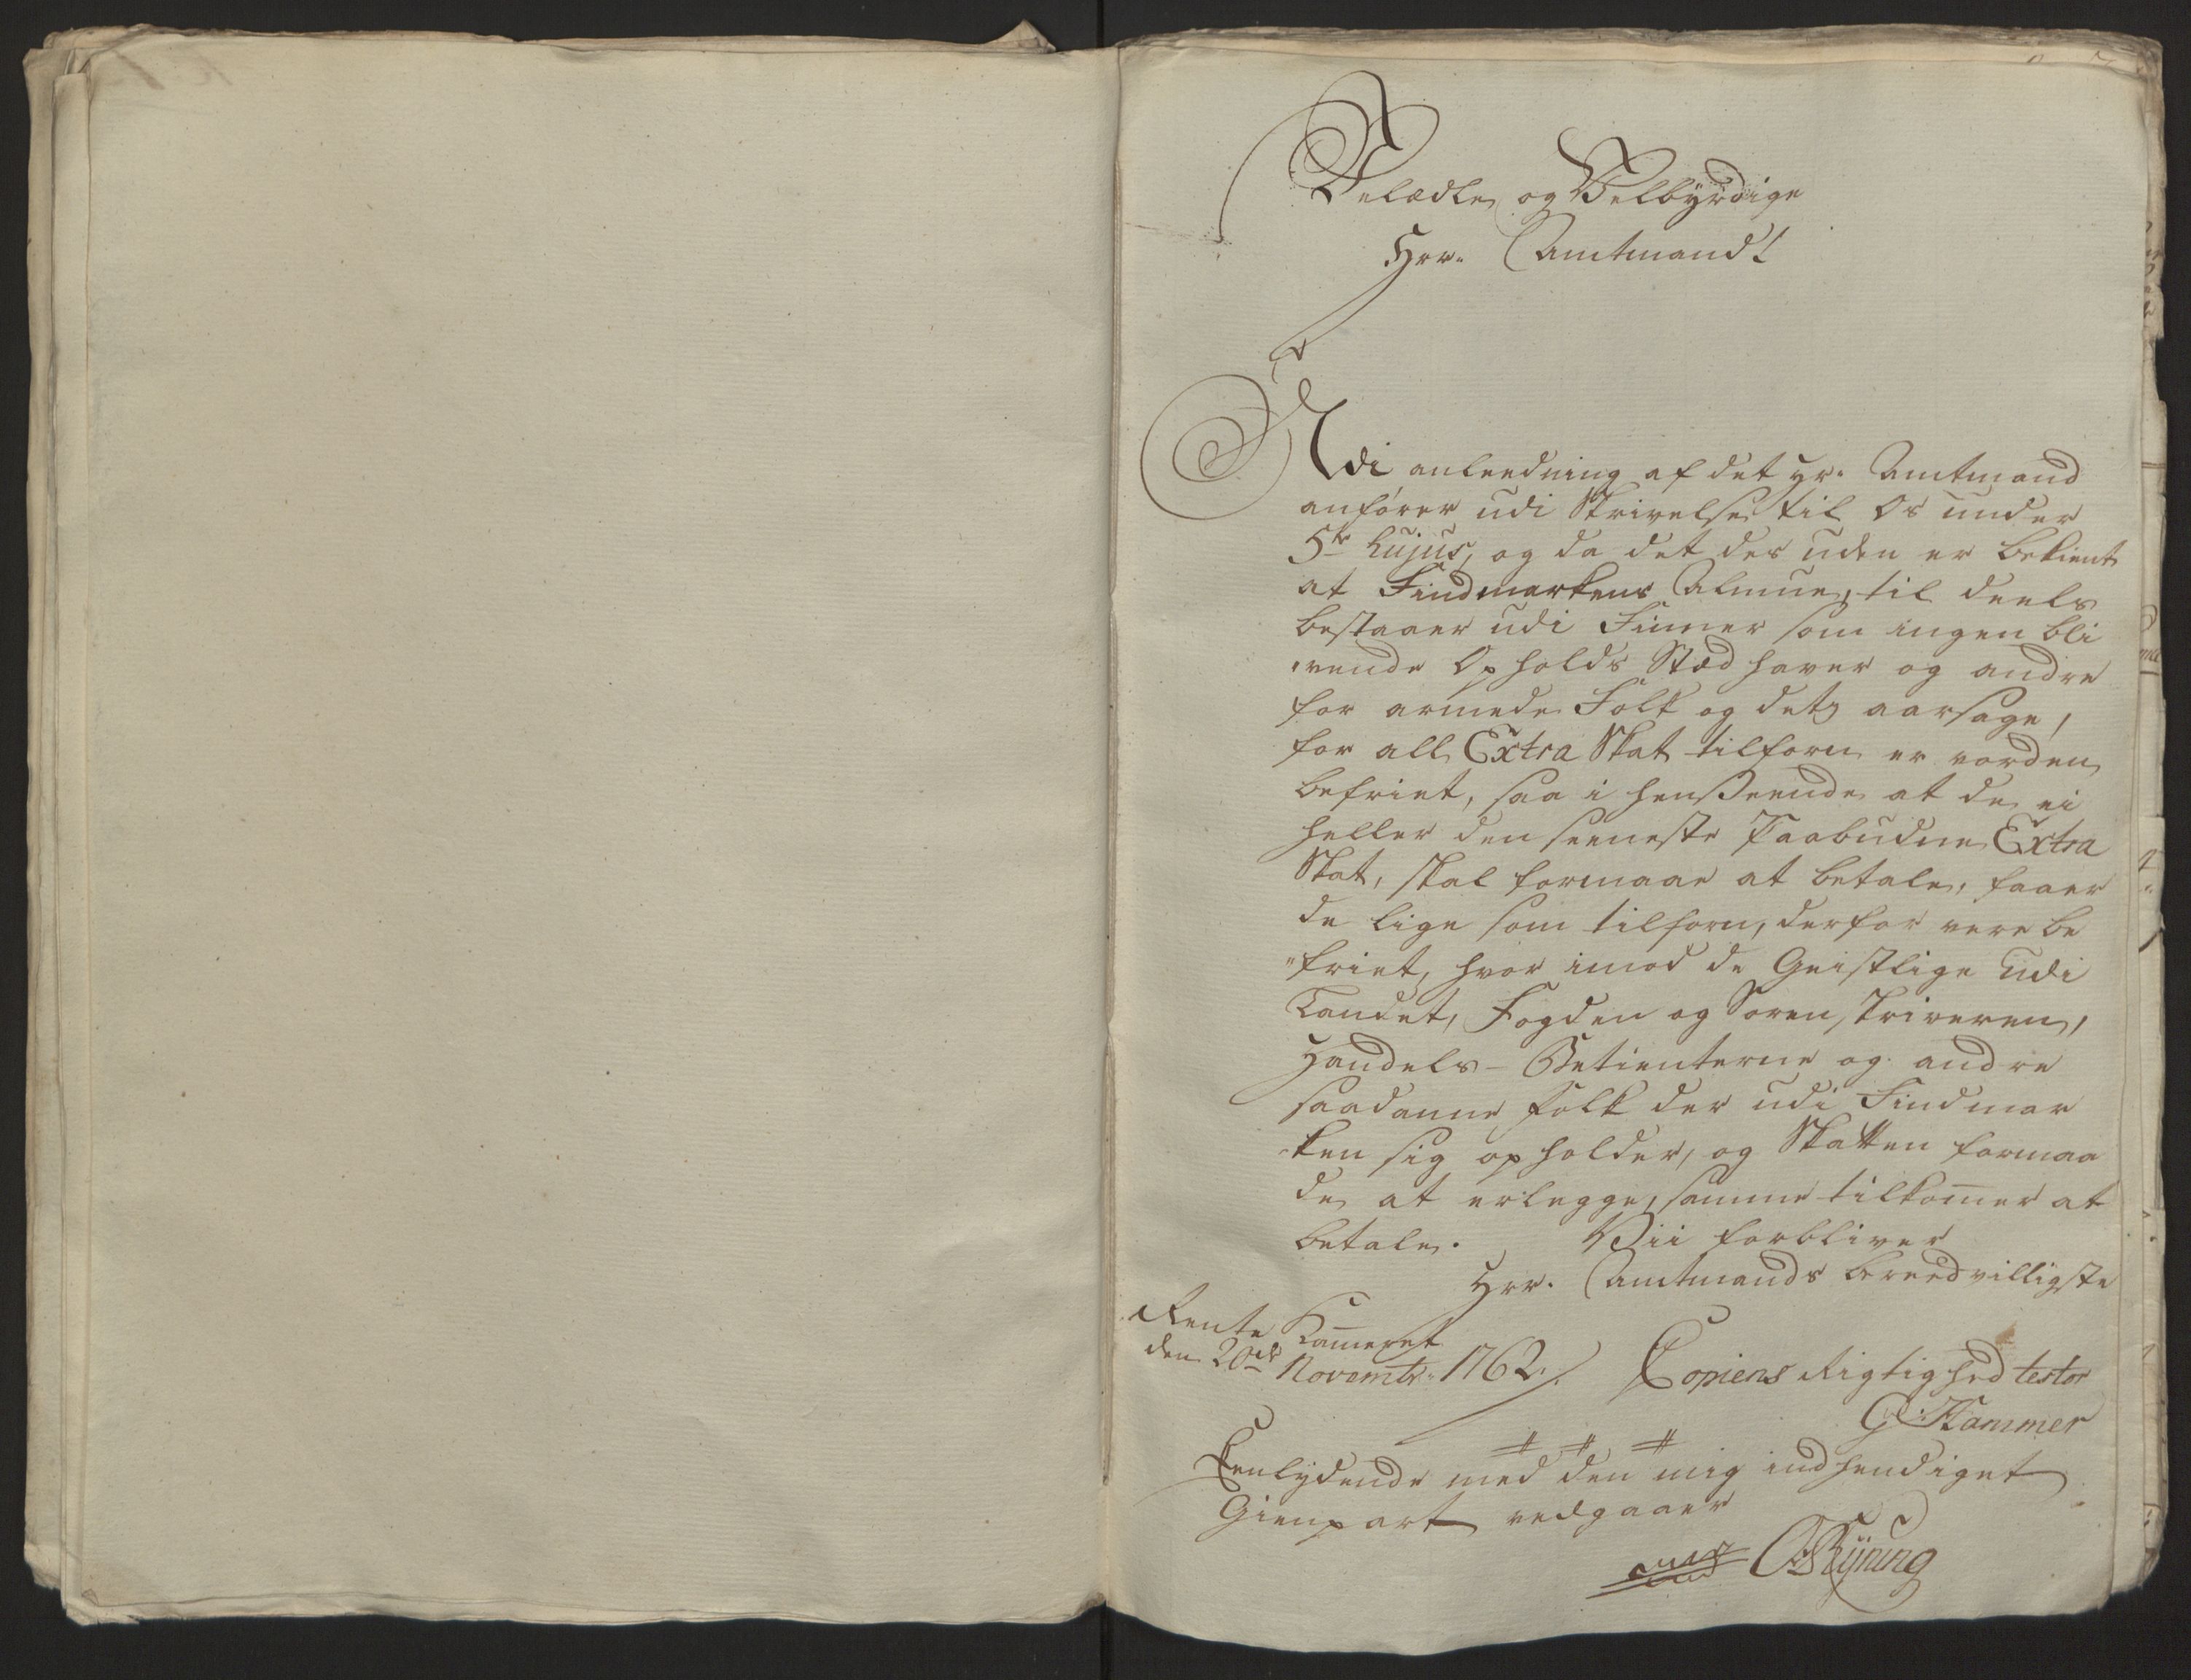 Velædle og Velbyrdige
Hrr. Amtmand!
Udi anleedning af det Hr. Amtmand
anfører udi Skrivelse til Os under
5te hujus, og da det des uden er bekient
at Findmarkens Almue, til deels
bestaaer udi Finner som ingen bli
vende Opholds Stæd haver og andre
for armede Folk og dets aarsage,
for all Extra Skat tilforn er vorden
befriet, saa i henseende at de ei
heller den seeneste Paabudne Extra
Skat, skal formaae at betale, faaer
de lige som tilforn, derfor være be
friet, hvor imod de Geistlige udi
Landet, Fogden og Soren skriveren,
Handels-Betienterne og andre
saadanne folk der udi Findmar
ken sig opholder, og Skatten formaa
de at erlegge, samme tilkomer at
betale. Vii forbliver
Hrr. Amtmands bereedvilligste
Rente Kameret
den 20de Novembr: 1762.
Copiens Rigtighed testor
G Hammer
Eenlydende med den mig indhendiget
Gienpart vedgaaer